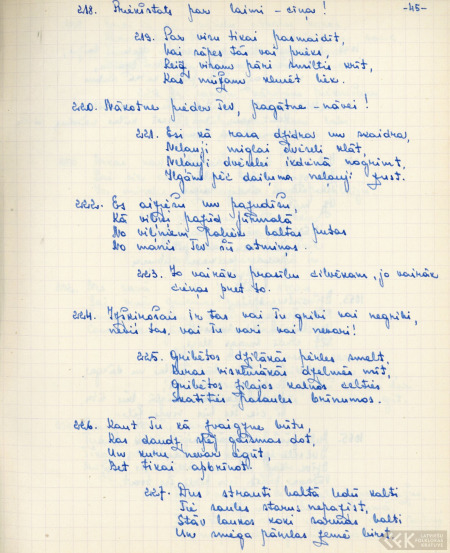 218. Priekšstats par laimi - cīņa!
-45-
219. Par visu tikai pasmaidīt,
Vai sāpes tās vai prieks,
Reiz visam pāri smiltis krīt,
Kas mūžam ņemēt liek.
220. Nākotne pieder Tev, pagātne - nāvei!
221. Esi kā rasa dzidra un skaidra,
Neļauj miglai dvēseli klāt,
Neļauj dvēselei ikdienā nogrimt,
Ilgām pēc daiļuma neļauj zust.
222. Es aiziešu un pazudīšu,
Kā vilnis pazūd jūrmalā
No viļņiem paliek baltas putas
No manis Tev šīs atmiņas.
223. Jo vairāk prasību cilvēkam, jo vairāk
cieņas pret to.
224. Izšķirošais ir tas vai Tu gribi vai negribi,
nebūs tas, vai Tu vari vai nevari!
225. Gribētos dziļākās pērles smelt,
Kuras vistumšākās dzelmēs mīt,
Gribētos zilajos kalnos celties
Skatīties pasaules brīnumos.
226. Kaut Tu kā zvaigzne būtu,
Kas daudz spēj gaismas dot,
Un kuru nevar iegūt,
Bet tikai apbrīnot.
227. Dus strauti baltā ledū kalti
Tie saules starus nepazīst,
Stāv laukos koki sarmas balti
Un sniega pārslas zemē birst.